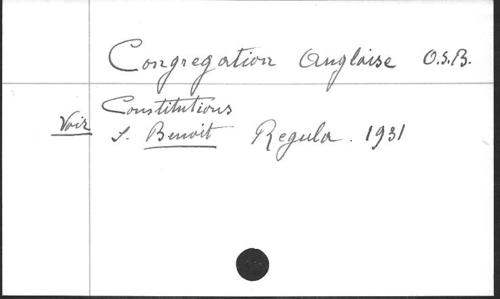 Congregation Anglaise O.S.B.
Constitutions
Voir S. Benoit Regula. 1931